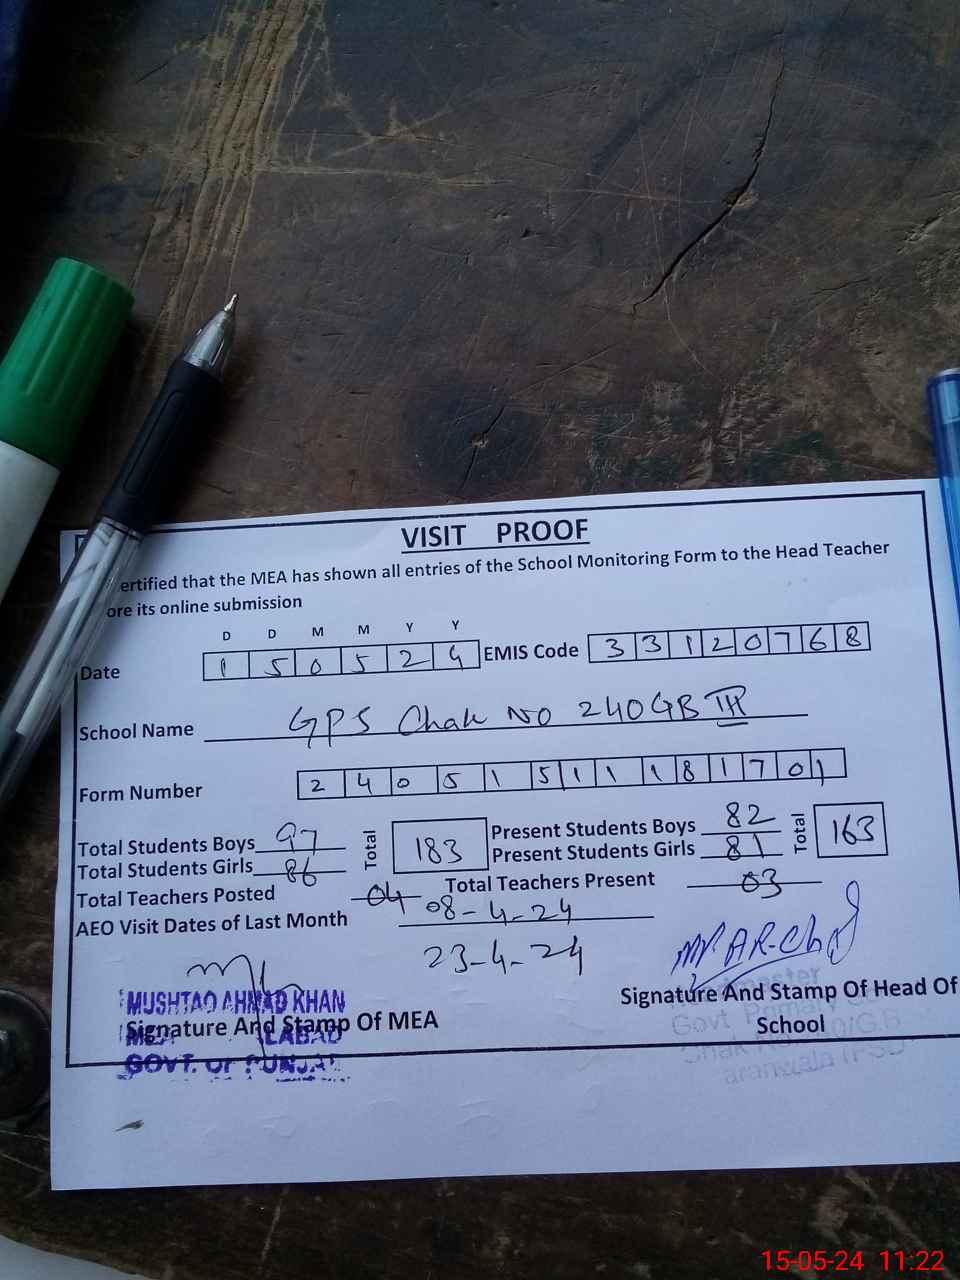 VISIT PROOF
ertified that the MEA has shown all entries of the School Monitoring Form to the Head Teacher
ore its online submission
D D M M Y Y
Date 1 5 0 5 2 4 EMIS Code 3 3 1 2 0 7 6 8
School Name GPS Chak No 240 GB III
Form Number 2 4 0 5 1 5 1 1 1 8 1 7 0 1
Total Students Boys 97 Total 183 Present Students Boys 82 Total 163
Total Students Girls 86 Present Students Girls 81
Total Teachers Posted 04 Total Teachers Present 03
AEO Visit Dates of Last Month 08-4-24
23-4-24
MUSHTAQ AHMAD KHAN
Signature And Stamp Of MEA
MEA LABAD
GOVT. OF PUNJAB
Signature And Stamp Of Head Of
School
Headmaster
Govt Primary
Chak No 240/G.B
aranwala (FSD)
15-05-24 11:22